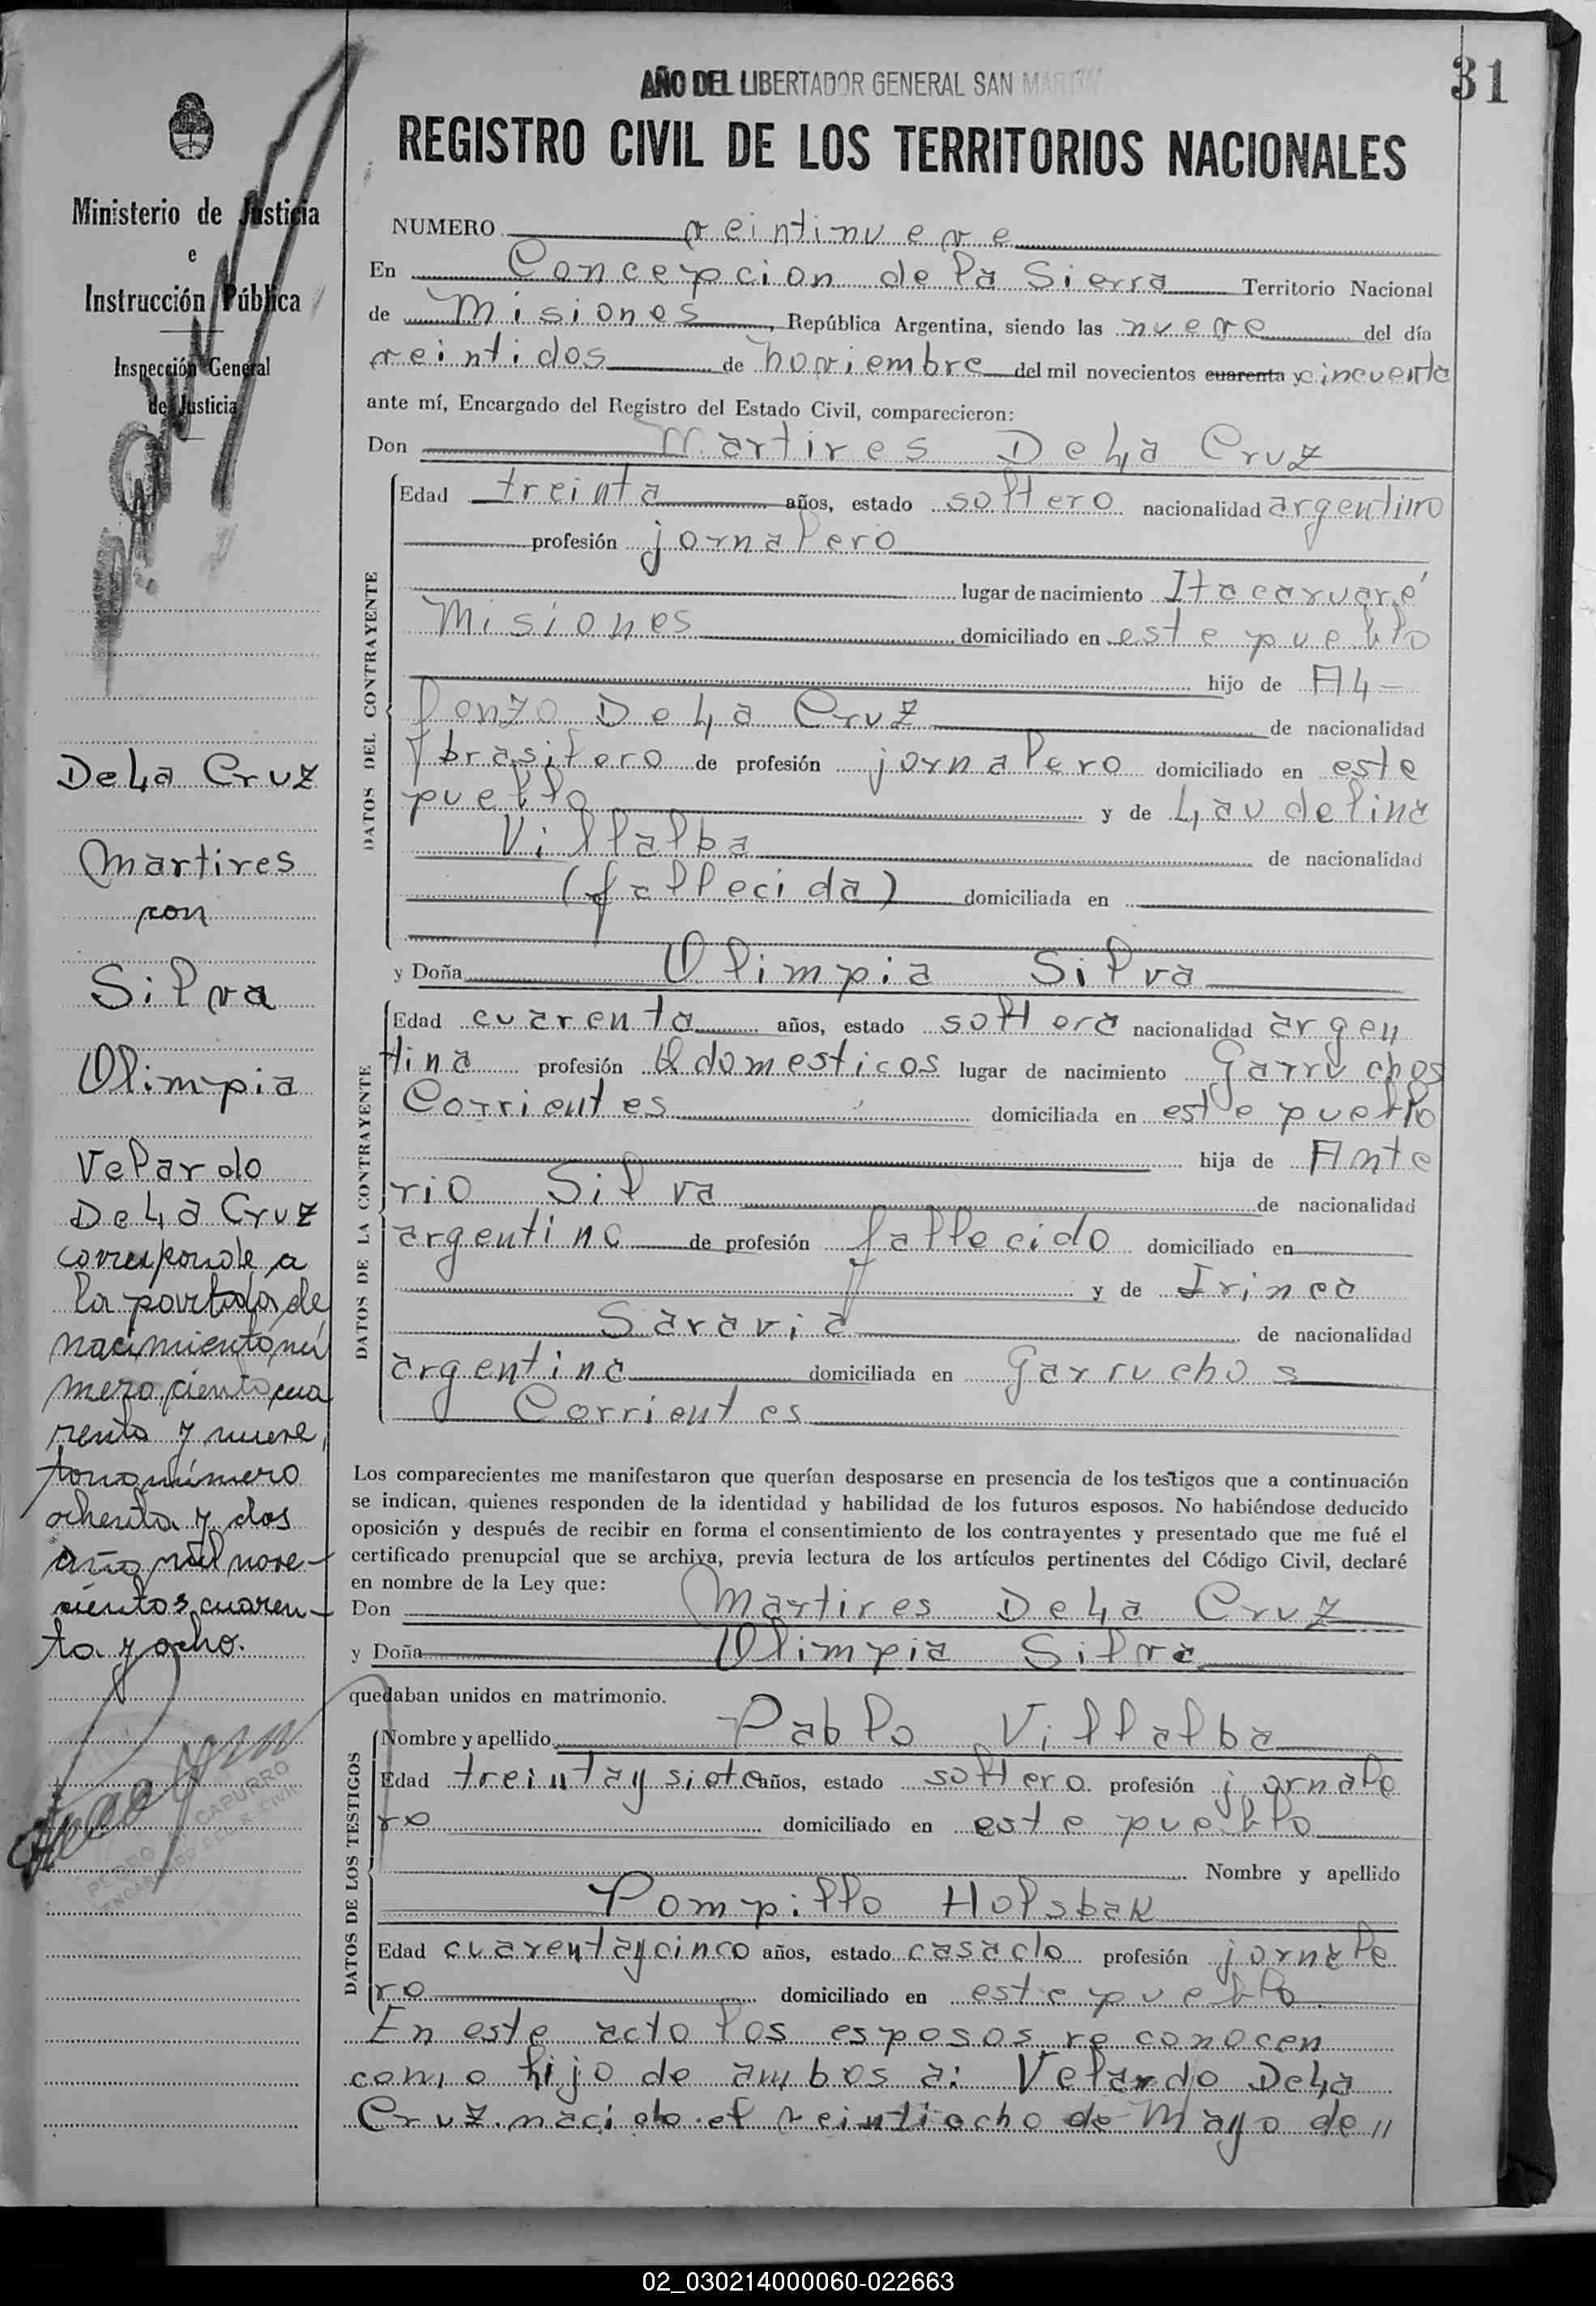 31
AÑO DEL LIBERTADOR GENERAL SAN MARTIN
REGISTRO CIVIL DE LOS TERRITORIOS NACIONALES
Ministerio de Justicia
e
Instrucción Pública
Inspección General
de Justicia
De La Cruz
Martires
con
Silva
Olimpia
Velardo
De La Cruz
corresponde a
la partida de
nacimiento nú
mero ciento cua
renta y nueve,
tomo número
ochenta y dos
año mil nove-
cientos cuaren-
ta y ocho.
PEDRO CAPURRO
ENCARGADO DEL R. CIVIL
NUMERO veintinueve
En Concepcion de la Sierra Territorio Nacional
de Misiones, República Argentina, siendo las nueve del día
veintidos de noviembre del mil novecientos cuarenta y cincuenta
ante mí, Encargado del Registro del Estado Civil, comparecieron:
Don Martires De La Cruz
DATOS DEL CONTRAYENTE
Edad treinta años, estado soltero nacionalidad argentino
profesión jornalero
lugar de nacimiento Itacaruaré
Misiones domiciliado en este pueblo
hijo de Al-
fonzo De La Cruz de nacionalidad
brasilero de profesión jornalero domiciliado en este
pueblo y de Laudelina
Villalba de nacionalidad
(fallecida) domiciliada en
y Doña Olimpia Silva
DATOS DE LA CONTRAYENTE
Edad cuarenta años, estado soltera nacionalidad argen
tina profesión Q domesticos lugar de nacimiento Garruchos
Corrientes domiciliada en este pueblo
hija de Ante
rio Silva de nacionalidad
argentina de profesión fallecido domiciliado en
y de Irinea
Saravia de nacionalidad
argentina domiciliada en Garruchos
Corrientes
Los comparecientes me manifestaron que querían desposarse en presencia de los testigos que a continuación
se indican, quienes responden de la identidad y habilidad de los futuros esposos. No habiéndose deducido
oposición y después de recibir en forma el consentimiento de los contrayentes y presentado que me fué el
certificado prenupcial que se archiva, previa lectura de los artículos pertinentes del Código Civil, declaré
en nombre de la Ley que:
Don Martires De La Cruz
y Doña Olimpia Silva
quedaban unidos en matrimonio.
DATOS DE LOS TESTIGOS
Nombre y apellido Pablo Villalba
Edad treinta y siete años, estado soltero profesión jornale
ro domiciliado en este pueblo
Nombre y apellido
Pompillo Holsbak
Edad cuarenta y cinco años, estado casado profesión jornale
ro domiciliado en este pueblo.
En este acto los esposos reconocen
como hijo de ambos a: Velardo De La
Cruz nacido el veintiocho de Mayo de //
02_030214000060-022663